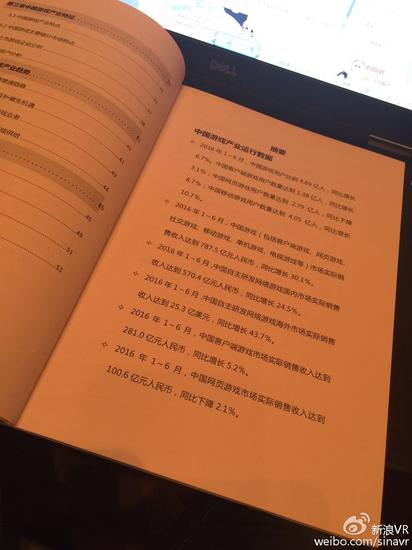 第三章中国游戏产业特征
3.1 中国游戏产业特点
41
41
44
45
45
51
51
DELL
摘要
中国游戏产业运行数据
✧ 2016 年 1~6 月，中国游戏用户达到 4.89 亿人，同比增长
6.7%。中国客户端游戏用户数量达到 1.38 亿人，同比增长
3.1%；中国网页游戏用户数量达到 2.79 亿人，同比下降
8.7%；中国移动游戏用户数量达到 4.05 亿人，同比增长
10.7%。
✧ 2016 年 1~6 月，中国游戏（包括客户端游戏、网页游戏、
社交游戏、移动游戏、单机游戏、电视游戏等）市场实际销
售收入达到 787.5 亿元人民币，同比增长 30.1%。
✧ 2016 年 1~6 月,中国自主研发网络游戏国内市场实际销售
收入达到 570.4 亿元人民币，同比增长 24.5%。
✧ 2016 年 1~6 月,中国自主研发网络游戏海外市场实际销售
收入达到 25.3 亿美元，同比增长 43.7%。
✧ 2016 年 1~6 月，中国客户端游戏市场实际销售收入达到
281.0 亿元人民币，同比增长 5.2%。
✧ 2016 年 1~6 月，中国网页游戏市场实际销售收入达到
100.6 亿元人民币，同比下降 2.1%。
新浪VR
weibo.com/sinavr